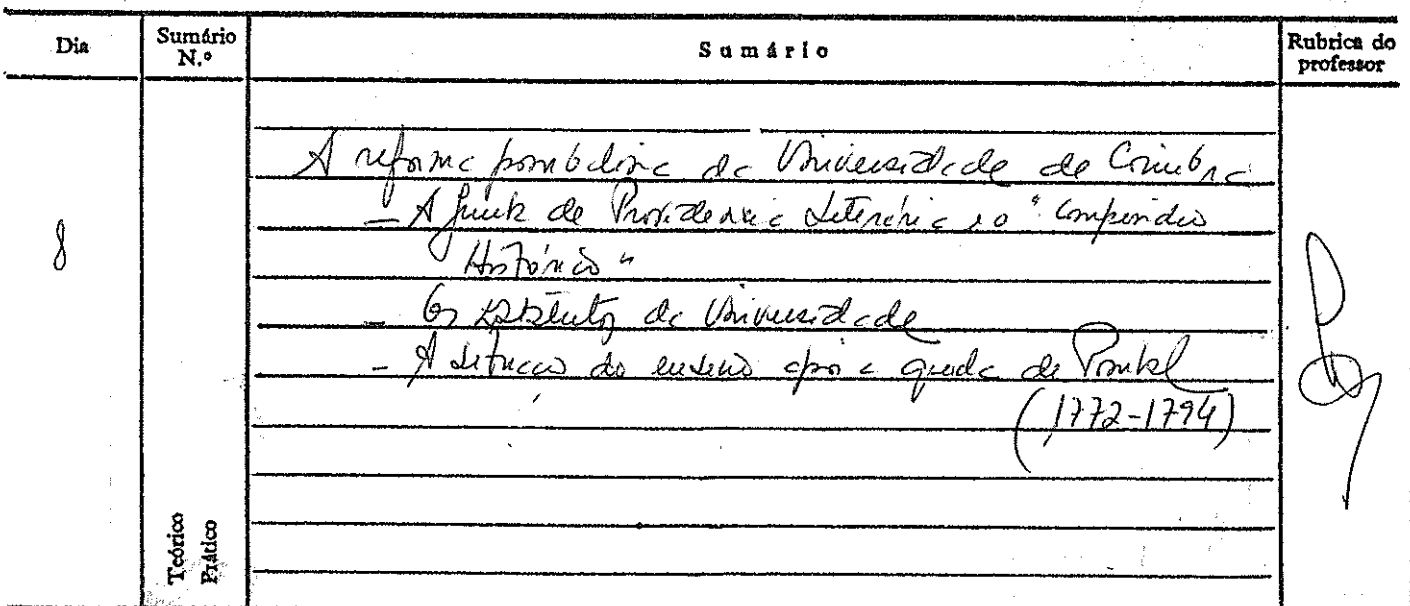 Dia
Sumário N.º
Sumário
Rubrica do professor
8
A reforma pombalina da Universidade de Coimbra
- A Junta de Providência Literária e o "Compêndio
Histórico"
- Os Estatutos da Universidade
- A situação do ensino após a queda de Pombal
(1772-1794)
Teórico
Prático